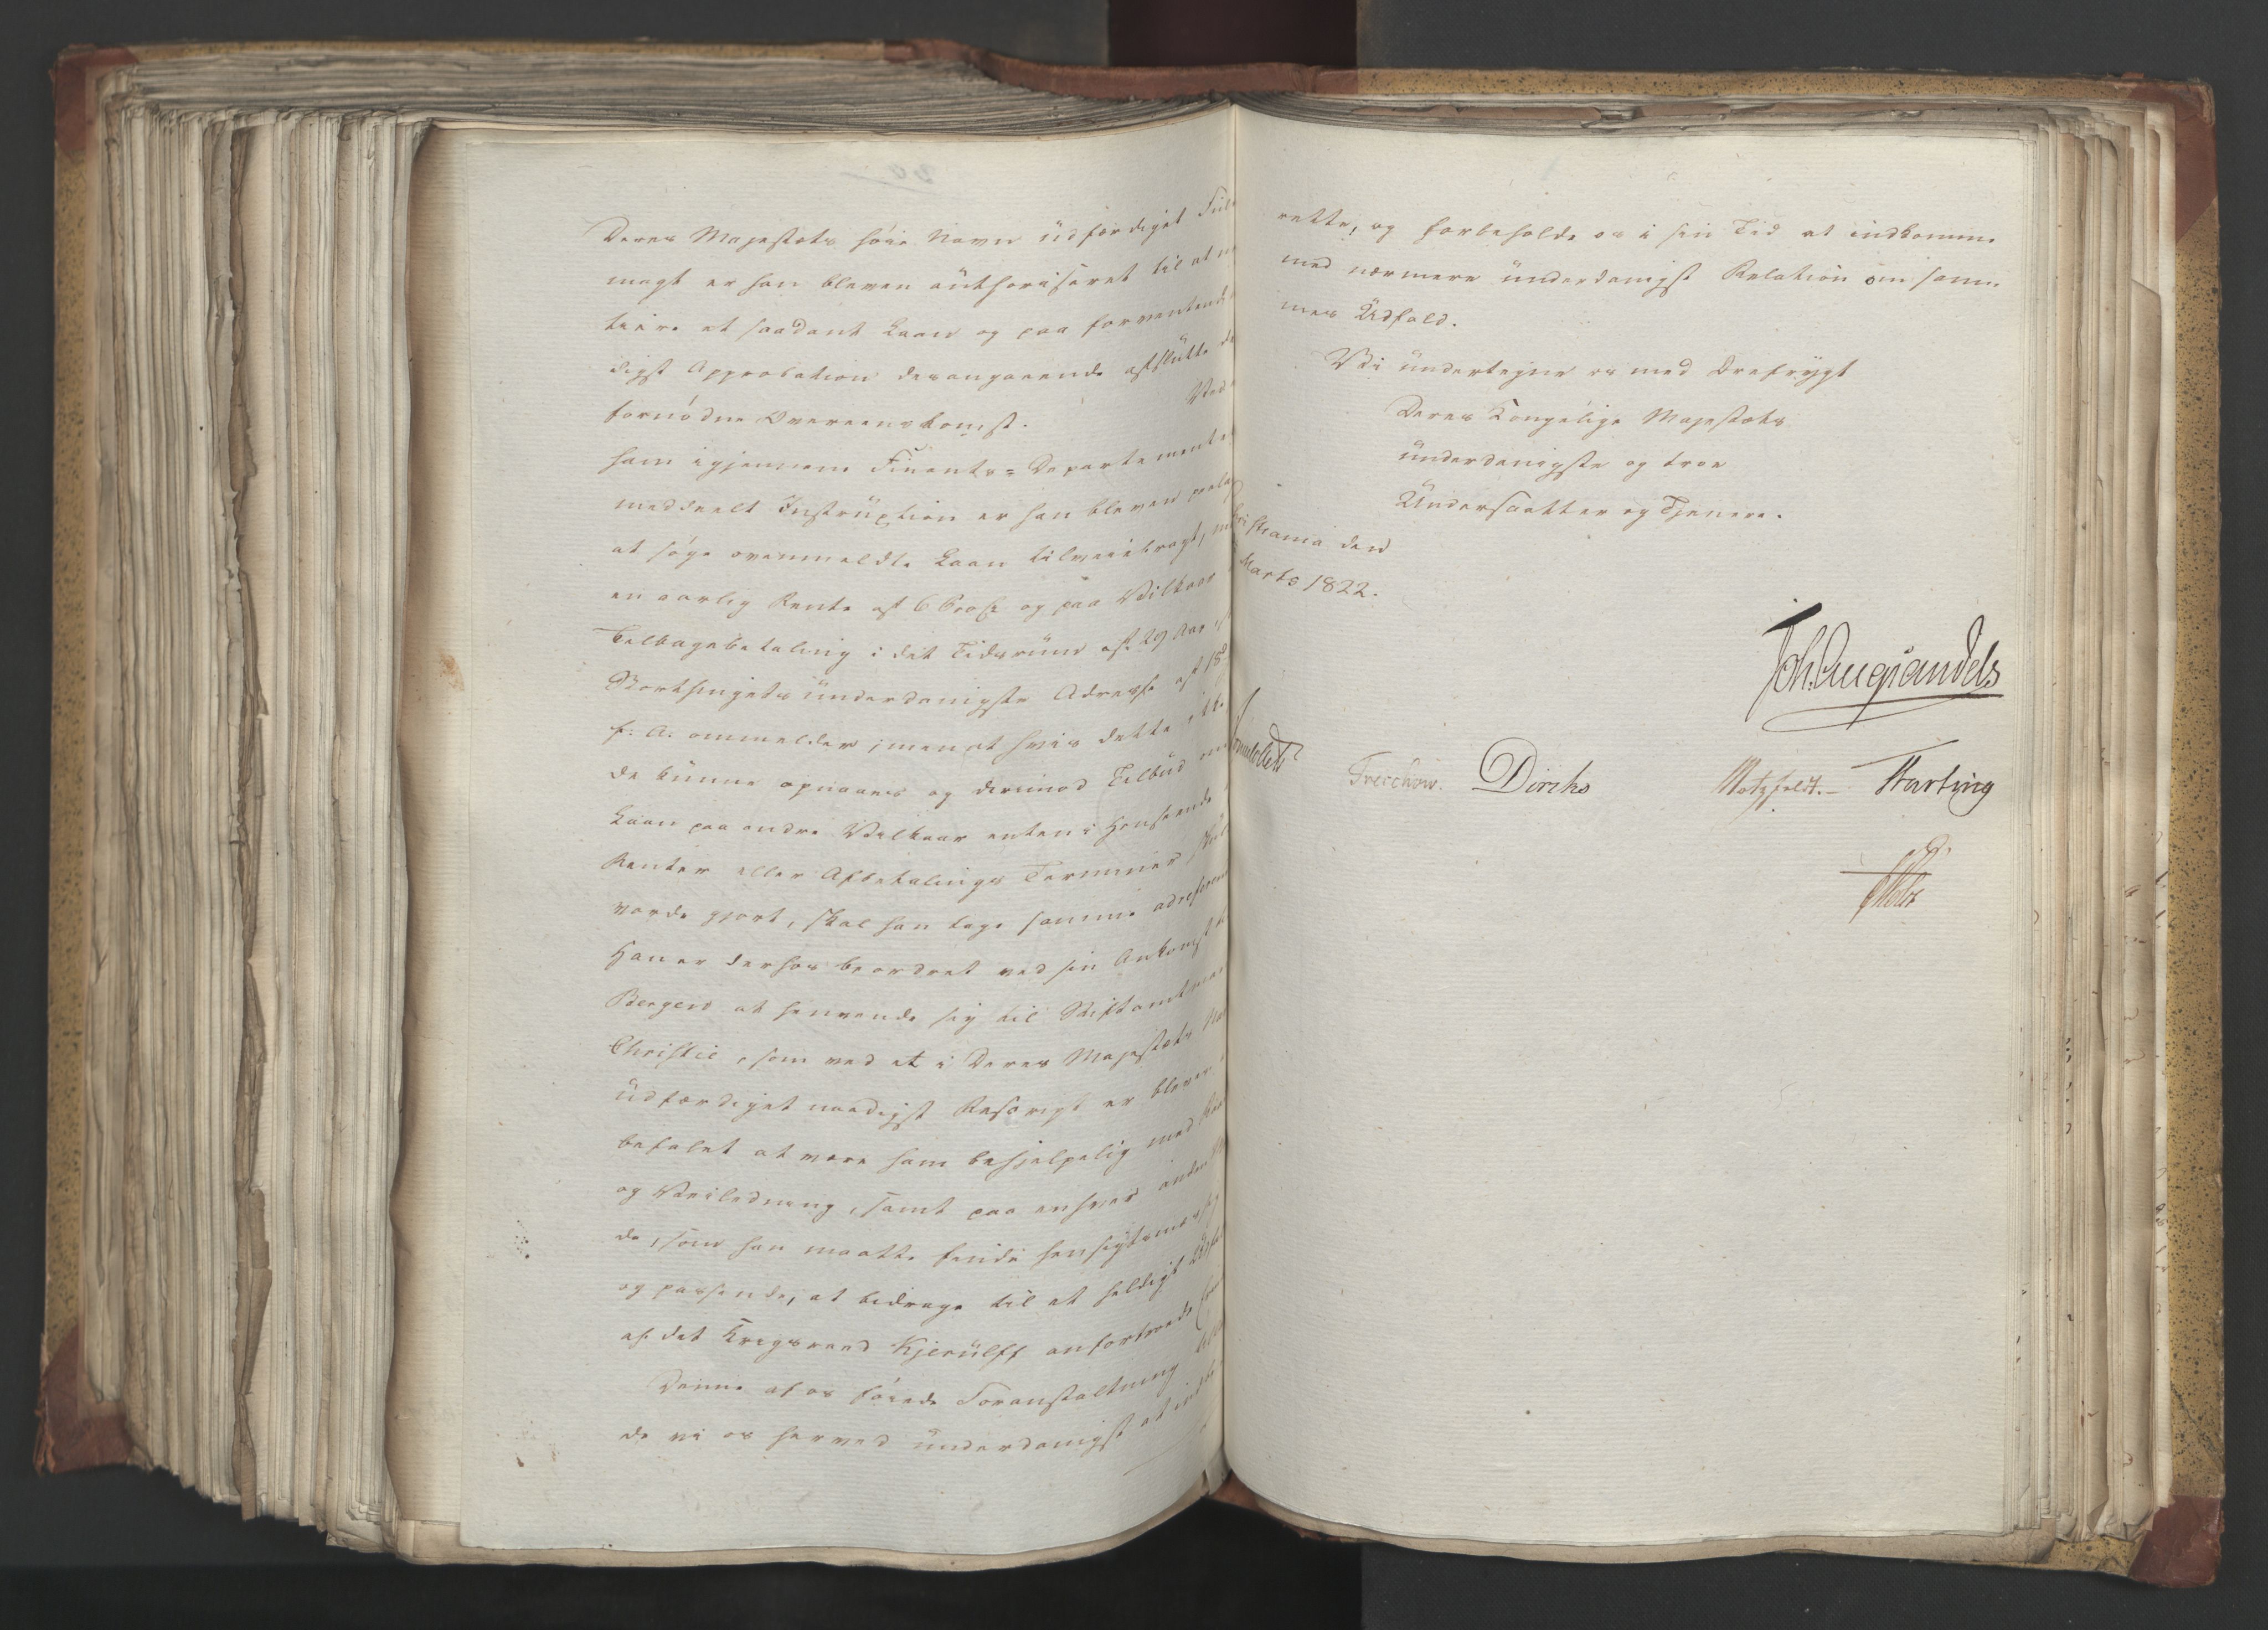 Deres Majestæts høie Navn udfærdiget Fuld
magt er han bleven authoriseret til at
tiere et saadant Laan og paa forventende
digst Approbation desangaaende afslutte
fornødne Overeenskomst. Ved
ham igjennem Finants-Departementet
meddeelt Instruction er han bleven paalag
at søge ovenmeldte Laan tilveiebragt,
en aarlig Rente af 6 Proc. og paa Vilkaar
Tilbagebetaling i det Tidsrum af 29 Aar
Storthingets underdanigste Adresse af 18de
f. A. ommelder; men at hvis dette ikke
de kunne opnaaes og derimod Tilbud om
Laan paa andre Vilkaar enten i Henseende
Renter eller Afbetalings Terminer skul
vorde gjort, skal han tage samme ad referen
Han er derhos beordret ved sin Ankomst
Bergen at henvende sig til Stiftamtman
Christie, som ved et i Deres Majestæts
udfærdiget naadigst Rescript er bleven
befalet at være ham behjelpelig med Raad
og Veiledning, samt paa enhver anden
de, som han maatte finde hensigtsmæssig
og passende, at bidrage til et heldigt Udfald
af det Krigsraad Kjerulff anfortroede
Denne af os føiede Foranstaltning
de vi os herved underdanigst at indbe
rette, og forbeholde os i sin Tid at indkomme
med nærmere underdanigst Relation om sam-
mes Udfald.
Vi undertegne os med Ærefrygt
Deres Kongelige Majestæts
underdanigste og troe
Undersaatter og Tjenere.
istiania den
Marts 1822.
Joh. Aug. Sandels
Sommerhielm Treschow. Diriks Motzfeldt. Harting
Holst